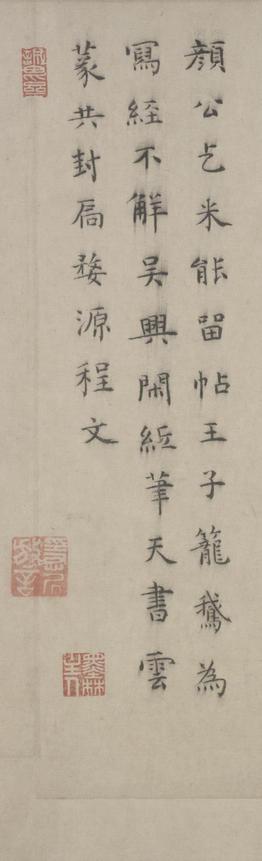 顏公乞米能留帖王子籠鵞為
寫經不觧吳興閑紙筆天書雲
篆共封扃婺源程文